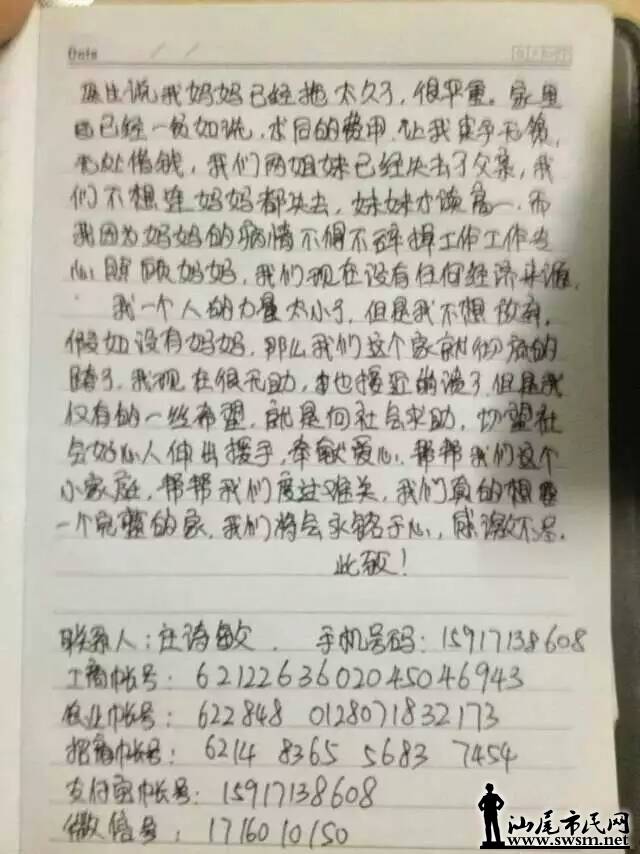 Date / /
医生说我妈妈已经拖太久了，很严重。家里
已经一贫如洗，水同的费用，让我实乎无钱，
无处借钱，我们两姐妹已经失去了父亲，我
们不想连妈妈都失去，妹妹才读高一，而
我因为妈妈的病情不得不辞掉工作工作专
心照顾妈妈，我们现在没有任何经济来源。
我一个人的力量太小了，但是我不想放弃，
假如没有妈妈，那么我们这个家就彻底的
了，我现在很无助，也接近崩溃了，但是我
仅有的一丝希望，就是向社会求助，切望社
会好心人伸出援手，奉献爱心，帮帮我们这个
小家庭，帮帮我们度过难关，我们真的想要
一个完整的家，我们将会永铭于心，感谢不尽。
此致！
联系人：庄诗敏． 手机号码：15917138608
工商帐号：6212263602045046943
农业帐号：622848 0128071832173
招商帐号：6214 8365 5683 7454
支付宝帐号：15917138608
微信号：1716010150
汕尾市民网
www.swsm.net